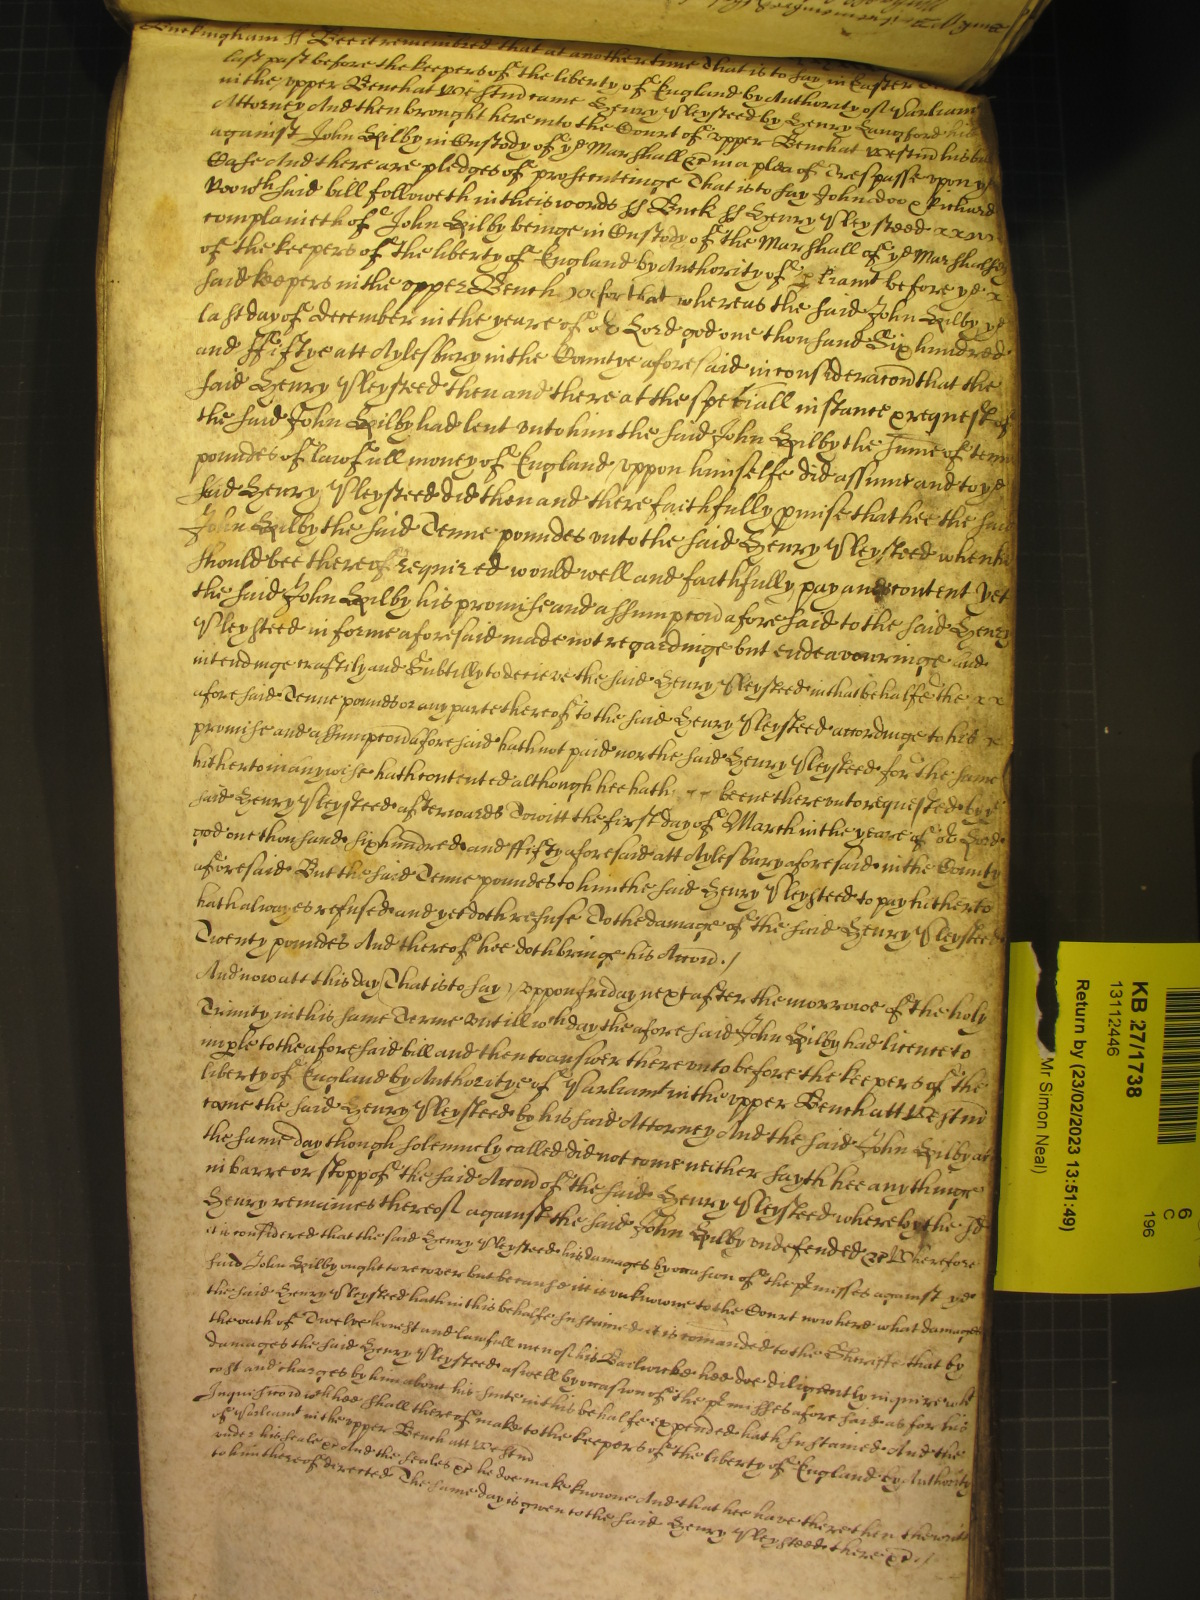 Buckingham ss Bee it remembred that at another time That is to say in Easter
last past before the keepers of the liberty of England by Authority of Parliam
in the upper Bench at Westm came Henry Pleysteed by Henry Langford his
Attorney And then brought here into the Court of upper Bench at Westm his bi
against John Gilby in Custody of ye Marshall &c in a plea of Trespasse upon ye
Case And there are pledges of prosecuteinge That is to say John doo & Richard
Roo wch said bill followeth in theis words ss Buck ss Henry Pleysteed
complaineth of John Gilby beinge in Custody of the Marshall of ye Marshalsey
of the keepers of the liberty of England by Authority of parliamt before ye x
said keepers in the upper Bench for that whereas the said John Gilby ye
last day of December in the yeare of or Lord god one thousand Six hundred
and ffiftye att Aylesbury in the Countye aforesaid in consideracon that the
said Henry Pleysteed then and there at the speciall instance & request of
the said John Gilby had lent unto him the said John Gilby the Sume of tenn
poundes of lawfull money of England uppon himselfe did assume and to ye
said Henry Pleysteed did then and there faithfully pmise that hee the said
John Gilby the said Tenne poundes unto the said Henry Pleysteed when h
should bee thereof required would well and faithfully pay and content Yet
the said John Gilby his promise and assumpcon aforesaid to the said Henry
Pleysteed in forme aforesaid made not regardinge but endeavouringe and
intendinge craftily and Subtilly to deceive the said Henry Pleysteed in that behalfe the x x
aforesaid Tenne pounds or any parte thereof to the said Henry Pleysteed accordinge to his x
promise and assumpcon aforesaid hath not paid nor the said Henry Pleysteed for the same
hitherto in any wise hath contented although hee hath beene thereunto requested by ye
said Henry Pleysteed afterwards Towitt the first day of March in the yeare of or Lord
god one thousand six hundred and ffifty aforesaid att Aylesbury aforesaid in the County
aforesaid But the said Tenne poundes to him the said Henry Pleysteed to pay hitherto
hath alwayes refused and yet doth refuse To the damage of the said Henry Pleysteed
Twenty poundes And thereof hee doth bringe his Accon ./
And now att this day (That is to say) uppon friday next after the morrowe of the holy
Trinity in this same Terme Untill wch day the aforesaid John Gilby had licence to
imple to the aforesaid bill and then to answer thereunto before the keepers of the
liberty of England by Authoritye of Parliamt in the upper Bench att Westm
came the said Henry Pleysteed by his said Attorney And the said John Gilby at
the same day though solemnely called did not come neither sayth hee any thinge
in barre or stopp of the said Accon of the said Henry Pleysteed whereby the sd
Henry remaines thereof against the said John Gilby undefended &c Wherefore
it is considered that the said Henry Pleysteed his damages by occasion of the pmisses against ye
said John Gilby ought to recover but because itt is unknowne to the Court now here what damages
the said Henry Pleysteed hath in this behalfe sustained it is comanded to the Sheriffe that by
the oath of Twelve honest and lawfull men of his Bailiwicke hee doe diligently inquire wht
damages the said Henry Pleysteed aswell by occasion of the pmisses aforesaid as for his
cost and charges by him about his suite in this behalfe expended hath sustained And the
Inquisicon wch hee shall thereof make to the keepers of the liberty of England by Authority
of Parliamt in the upper Bench att Westm
under his seale &c And the seales &c he doe make knowne And that hee have there then the writt
to him thereof directed The same day is given to the said Henry Pleysteed there &c ./
KB 27/1738
13112446
Return by (23/02/2023 13:51:49)
Mr Simon Neal)
6
C
196